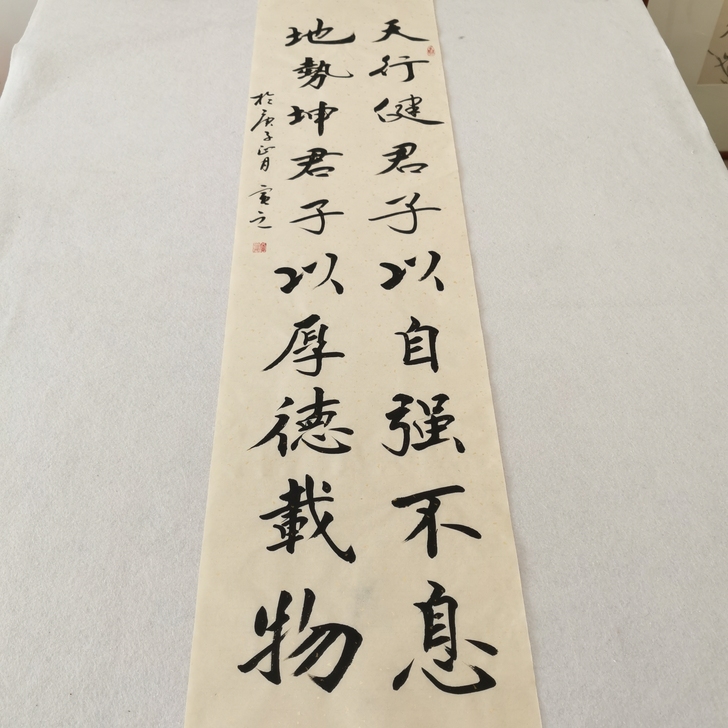 天行健君子以自强不息
地勢坤君子以厚德載物
於庚子正月